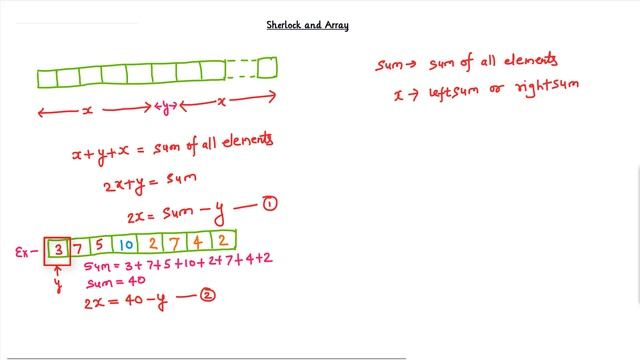 Sherlock and Array
sum → sum of all elements
x → leftsum or rightsum
x y x
x+y+x = sum of all elements
2x+y = sum
2x = sum - y — ①
Ex - 3 7 5 10 2 7 4 2
y
sum = 3+7+5+10+2+7+4+2
sum = 40
2x = 40 - y — ②